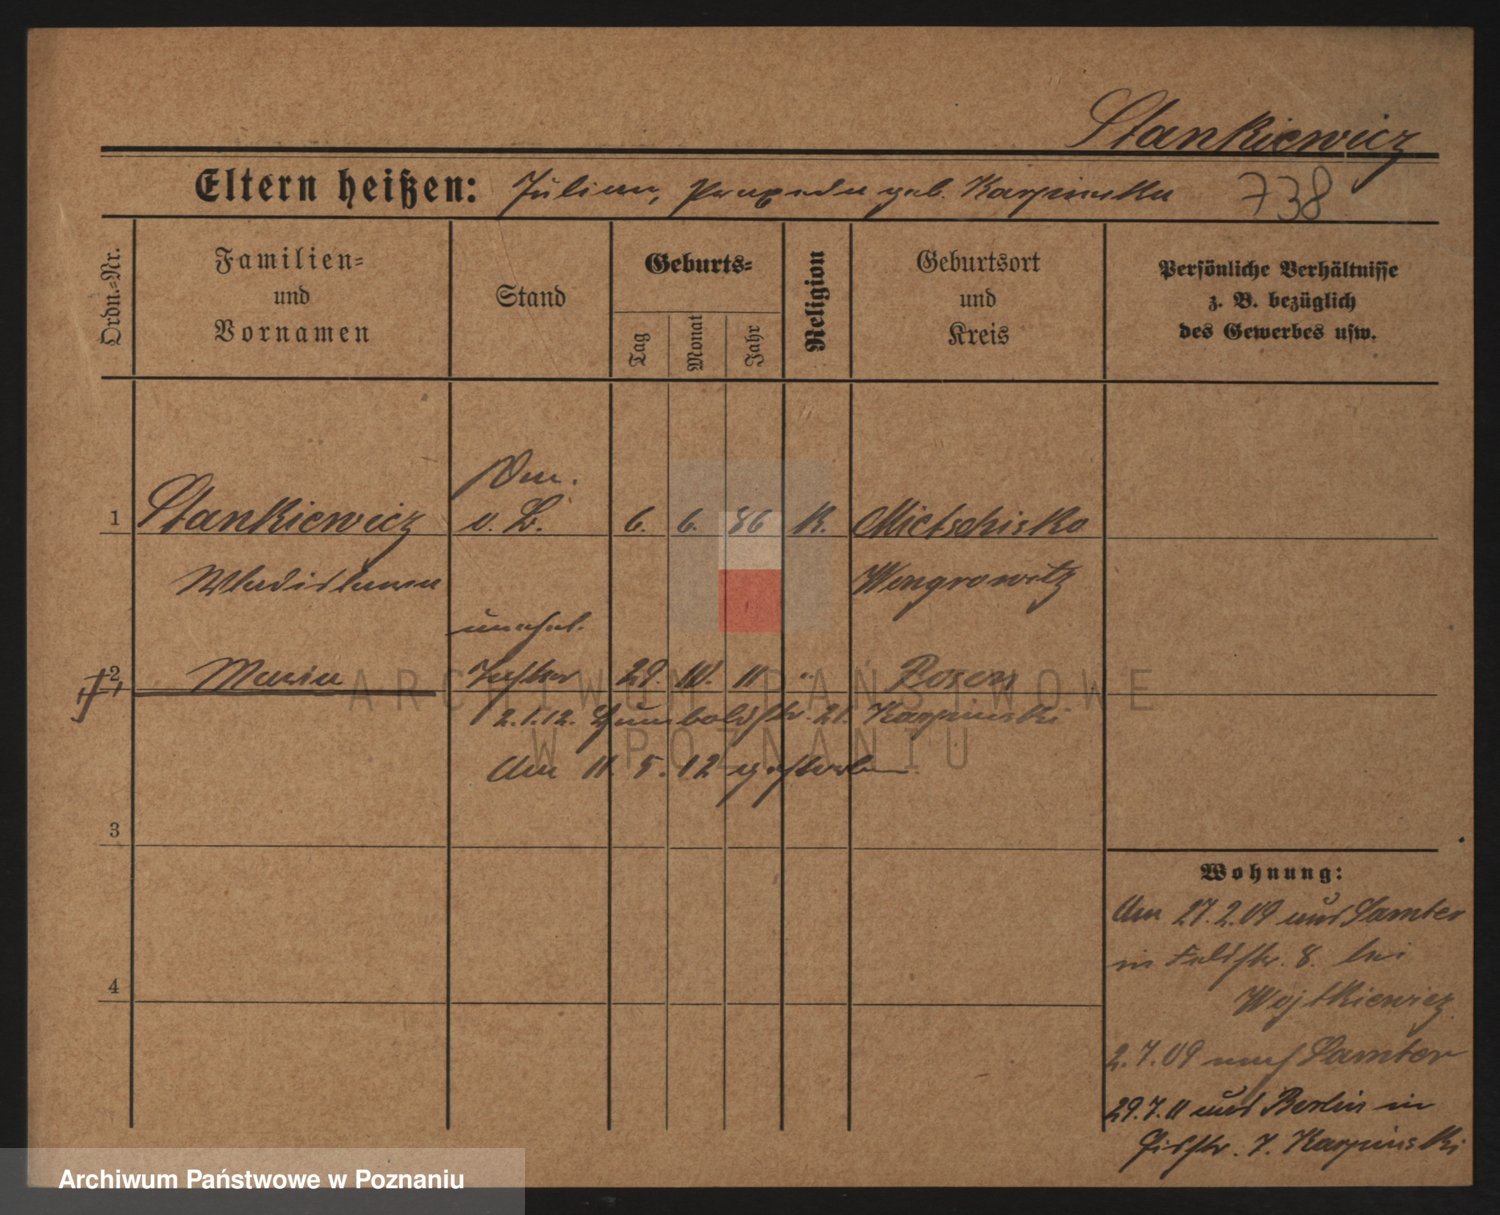 Stankiewicz
Eltern heißen: Julian, Praxeda geb. Karpinska 738
Ordn.-Nr.
Familien-
und
Vornamen
Stand
Geburts-
Tag
Monat
Jahr
Religion
Geburtsort
und
Kreis
Persönliche Verhältnisse
z. B. bezüglich
des Gewerbes usw.
1 Stankiewicz v. L. 6. 6. 86 K. Mietschisko
Wladislawa Wongrowitz
unehel.
2 Maria Tochter 29. 11 " Posen
2.1.12. Humboldstr. 21. Karpinski
Am 11. 5. 12 gestorben
3
4
Wohnung:
Am 27.2.09 aus Samter
in Feldstr. 8. bei
Wojtkiewicz
2.7.09 nach Samter
29.7.11 aus Berlin in
7. Karpinski
ARCHIWUM PAŃSTWOWE
W POZNANIU
Archiwum Państwowe w Poznaniu